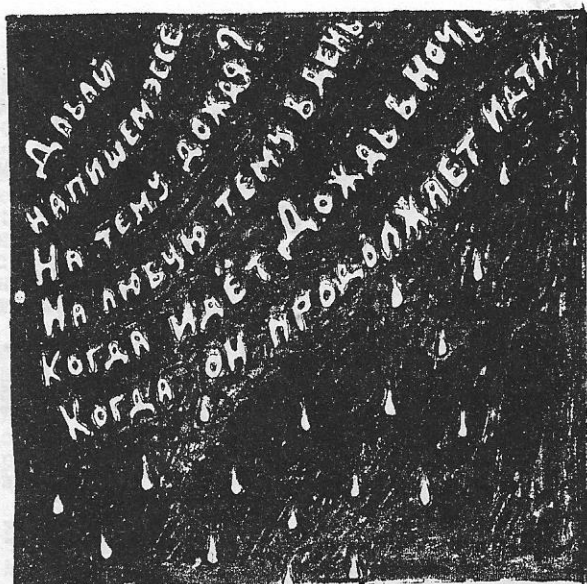 ДАВАЙ
НАПИШЕМ ЭССЕ
НА ТЕМУ ДОЖДЯ?
НА ЛЮБУЮ ТЕМУ В ДЕНЬ
КОГДА ИДЁТ ДОЖДЬ В НОЧЬ
КОГДА ОН ПРОДОЛЖАЕТ ИДТИ